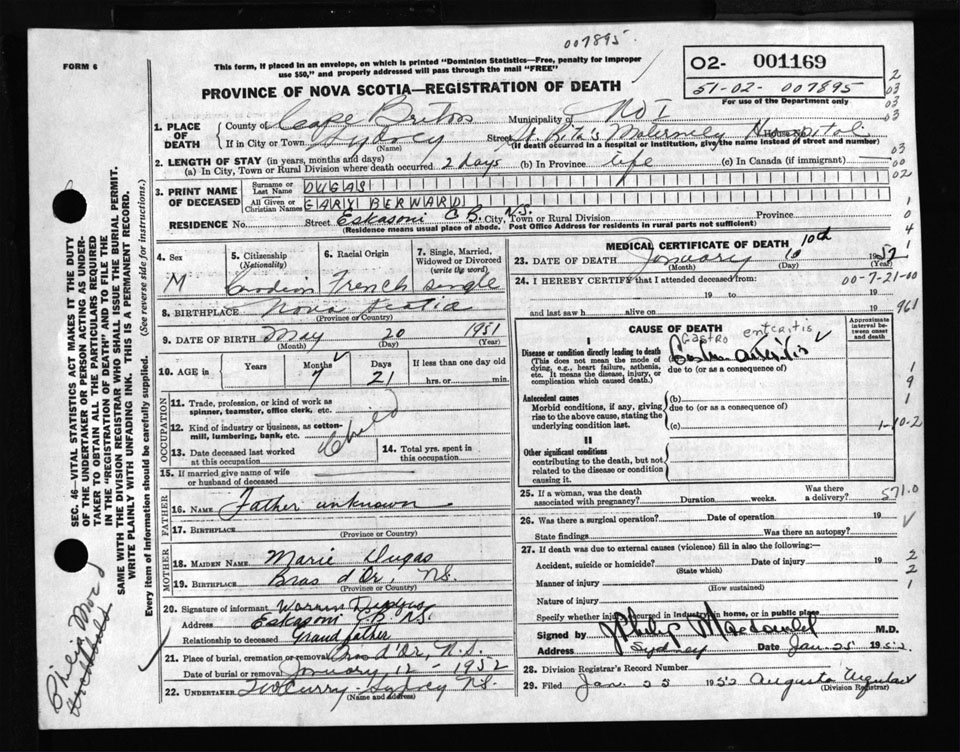 007895.
FORM 6
This form, if placed in an envelope, on which is printed "Dominion Statistics—Free, penalty for improper
use $50," and properly addressed will pass through the mail "FREE"
O2- 001169
51-02- 007895
For use of the Department only
PROVINCE OF NOVA SCOTIA—REGISTRATION OF DEATH
1. PLACE OF DEATH
County of Cape Breton Municipality of No 1
If in City or Town Sydney Street St. Rita's Maternity Hospital House No.
(Name) (If death occurred in a hospital or institution, give the name instead of street and number)
2. LENGTH OF STAY (in years, months and days)
(a) In City, Town or Rural Division where death occurred 2 days (b) In Province life (c) In Canada (if immigrant) —
3. PRINT NAME OF DECEASED
Surname or Last Name DUGAS
All Given or Christian Names GARY BERWARD
RESIDENCE No. Street Eskasoni C.B. N.S. City, Town or Rural Division Province
(Residence means usual place of abode. Post Office Address for residents in rural parts not sufficient)
4. Sex
M
5. Citizenship
(Nationality)
6. Racial Origin
French
7. Single, Married,
Widowed or Divorced
(write the word)
single
8. BIRTHPLACE Nova Scotia
(Province or Country)
9. DATE OF BIRTH May 20 1951
(Month) (Day) (Year)
10. AGE in
Years Months Days If less than one day old
7 21 hrs. or min.
OCCUPATION
11. Trade, profession, or kind of work as
spinner, teamster, office clerk, etc.
12. Kind of industry or business, as cotton-
mill, lumbering, bank, etc.
Child
13. Date deceased last worked
at this occupation
14. Total yrs. spent in
this occupation
15. If married give name of wife
or husband of deceased
FATHER
16. NAME Father unknown
17. BIRTHPLACE
(Province or Country)
MOTHER
18. MAIDEN NAME Marie Dugas
19. BIRTHPLACE Bras d'Or, N.S.
(Province or Country)
20. Signature of informant Warren Dugas
Address Eskasoni C.B. N.S.
Relationship to deceased Grandfather
21. Place of burial, cremation or removal Bras d'Or, N.S.
Date of burial or removal January 12 - 1952
22. UNDERTAKER Curry - Sydney N.S.
(Name and address)
MEDICAL CERTIFICATE OF DEATH
23. DATE OF DEATH January 10 10th 1952
(Month) (Day) (Year)
24. I HEREBY CERTIFY that I attended deceased from:
00-7-21-00
19 to 19
and last saw h alive on 19
961
CAUSE OF DEATH
Approximate
interval be-
tween onset
and death
I
Disease or condition directly leading to death
(This does not mean the mode of
dying, e.g., heart failure, asthenia,
etc. It means the disease, injury, or
complication which caused death.)
gastro enteritis
due to (or as a consequence of)
Antecedent causes
Morbid conditions, if any, giving
rise to the above cause, stating the
underlying condition last.
(b)
due to (or as a consequence of)
(c)
1-10-2
II
Other significant conditions
contributing to the death, but not
related to the disease or condition
causing it.
25. If a woman, was the death
associated with pregnancy? Duration weeks. Was there
a delivery?
571.0
26. Was there a surgical operation? Date of operation 19
State findings Was there an autopsy?
27. If death was due to external causes (violence) fill in also the following:—
Accident, suicide or homicide? Date of injury 19
(State which)
Manner of injury
(How sustained)
Nature of injury
Specify whether injury occurred in industry, in home, or in public place
Signed by Philip Macdonald M.D.
Address Sydney Date Jan. 25 1952
28. Division Registrar's Record Number
29. Filed Jan. 25 1952 Augusta
(Division Registrar)
SEC. 46—VITAL STATISTICS ACT MAKES IT THE DUTY
OF THE UNDERTAKER OR PERSON ACTING AS UNDER-
TAKER TO OBTAIN ALL THE PARTICULARS REQUIRED
IN THE "REGISTRATION OF DEATH" AND TO FILE THE
SAME WITH THE DIVISION REGISTRAR WHO SHALL ISSUE THE BURIAL PERMIT.
WRITE PLAINLY WITH UNFADING INK. THIS IS A PERMANENT RECORD.
Every item of information should be carefully supplied. (See reverse side for instructions.)